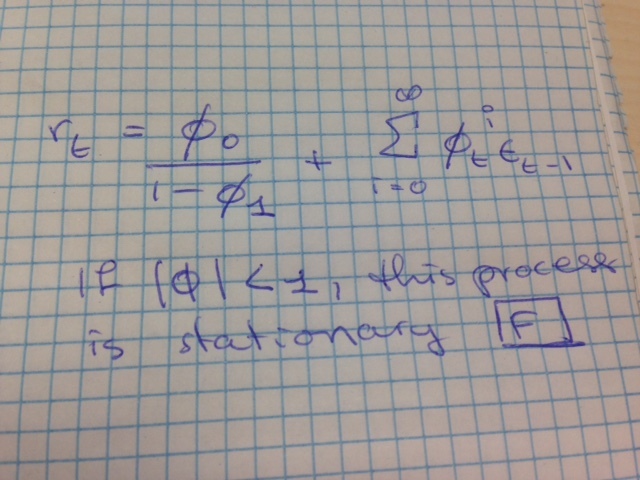 r_t = ϕ_0 / (1 - ϕ_1) + ∑_{i=0}^{∞} ϕ_t^i ϵ_{t-1}
If |ϕ| < 1, this process
is stationary F